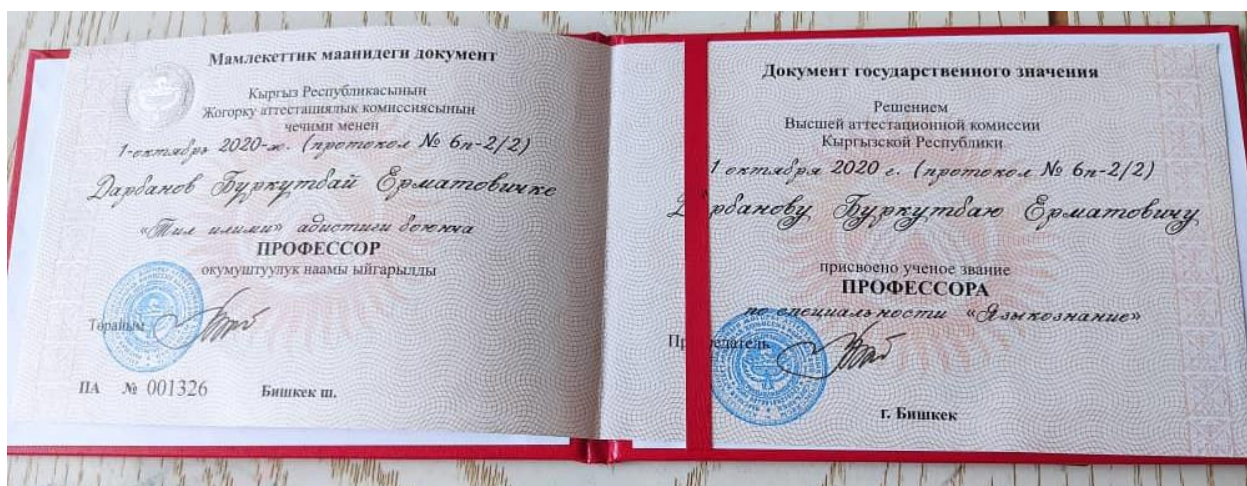 Мамлекеттик маанидеги документ
Кыргыз Республикасынын
Жогорку аттестациялык комиссиясынын
чечими менен
1-октябрь 2020-ж. (протокол № 6п-2/2)
Дарбанов Буркутбай Ерматовичке
«Тил илими» адистиги боюнча
ПРОФЕССОР
окумуштуулук наамы ыйгарылды
Төрайым
ПА № 001326 Бишкек ш.
Документ государственного значения
Решением
Высшей аттестационной комиссии
Кыргызской Республики
1 октября 2020 г. (протокол № 6п-2/2)
Дарбанову Буркутбаю Ерматовичу
присвоено ученое звание
ПРОФЕССОРА
по специальности «Языкознание»
Председатель
г. Бишкек